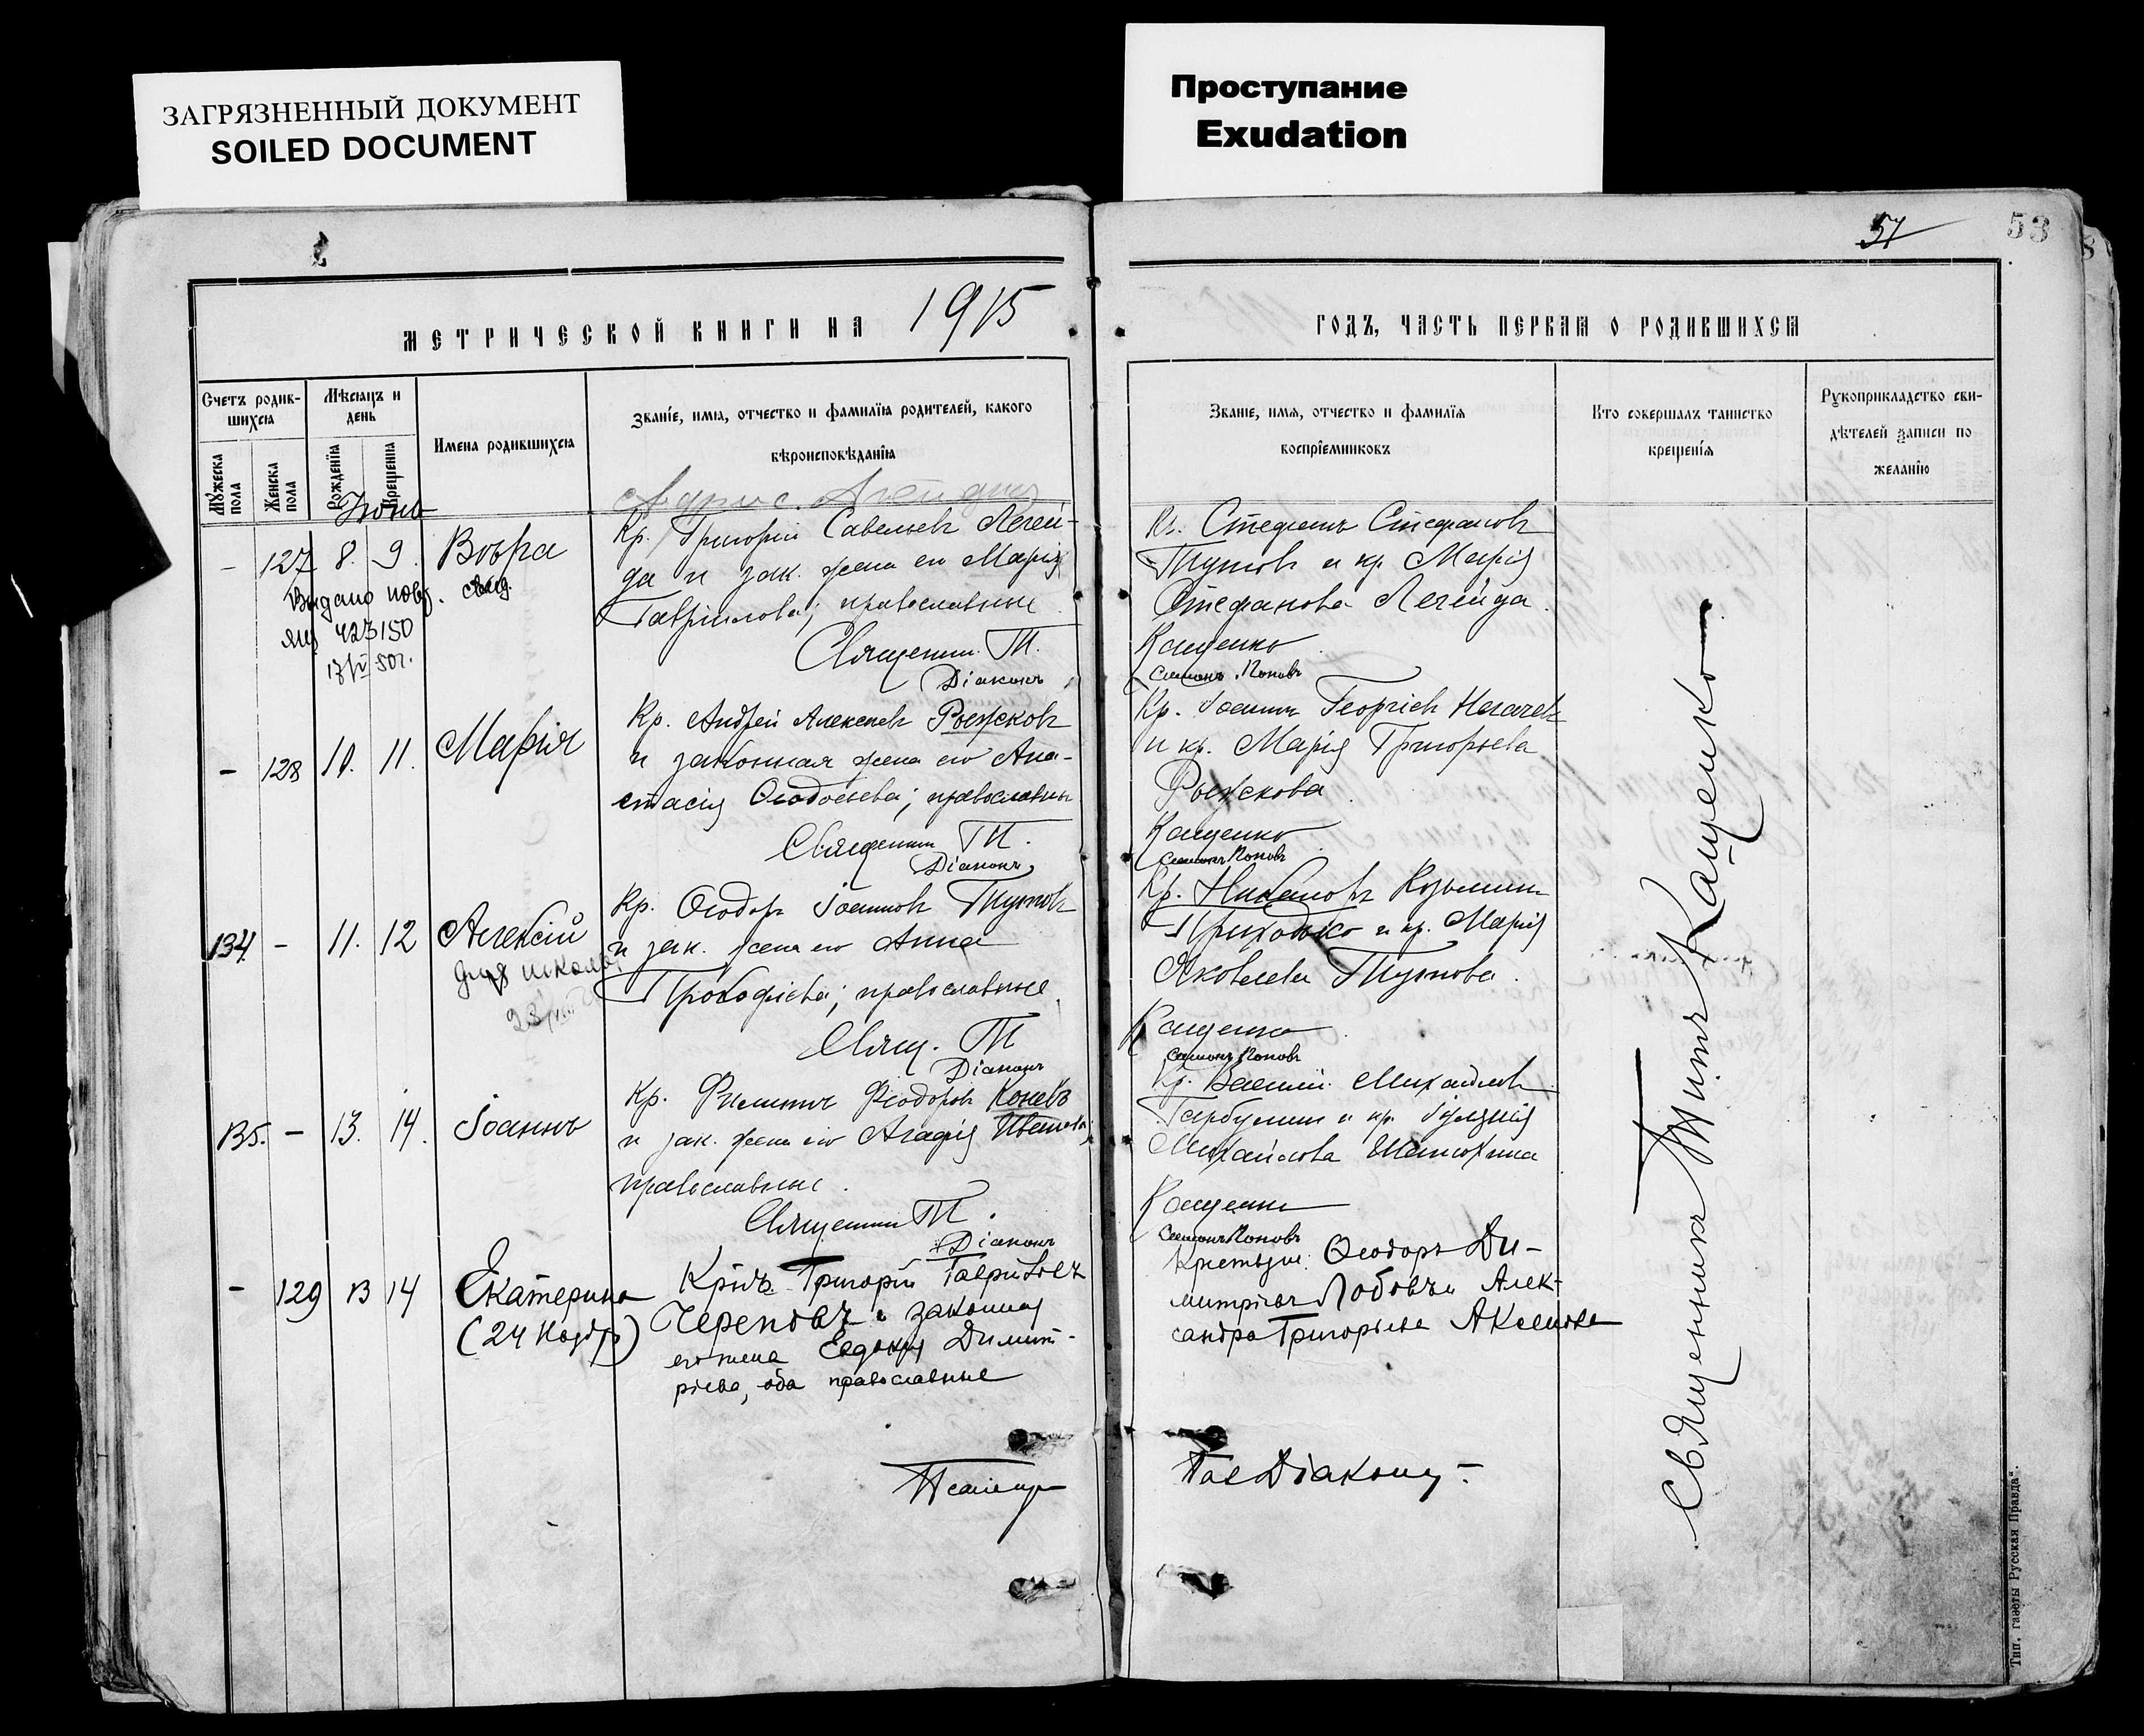 ЗАГРЯЗНЕННЫЙ ДОКУМЕНТ
SOILED DOCUMENT
Проступание
Exudation
57
53
МЕТРИЧЕСКОЙ КНИГИ НА 1915
ГОДЪ, ЧАСТЬ ПЕРВАЯ О РОДИВШИХСЯ
Счетъ родив-
шихся
Мужеска пола
Женска пола
Мѣсяцъ и
день
Рожденія
Крещенія
Имена родившихся
Званіе, имя, отчество и фамилія родителей, какого
вѣроисповѣданія
Званіе, имя, отчество и фамилія
воспріемниковъ
Кто совершалъ таинство
крещенія
Рукоприкладство сви-
дѣтелей записи по
желанію
Іюнь
- 127 8. 9. Вѣра
Выдано повт. свид.
423150
Кр. Григорій Савельевъ Легей-
да и зак. жена его Марія
Гавріилова; православные
Священник Т.
Діаконъ
Кр. Стефанъ Стефановъ
Тутовъ и кр. Марія
Стефанова Легейда.
Кащенко
Симонъ Поповъ
- 128 10. 11. Марія
Кр. Андрей Алексѣевъ Рыжковъ
и законная жена его Ана-
стасія Ѳеодосьева; православны
Священник Т.
Діаконъ
Кр. Іоаннъ Георгіевъ
и кр. Марія Григорьева
Рыжскова
Кащенко
Симонъ Поповъ
134 - 11. 12 Алексій
для школы
Кр. Ѳеодоръ Іоанновъ Тутовъ
и зак. жена его Анна
Прокофіева; православные
Свящ. Т
Діаконъ
Кр. Никаноръ Козьминъ
Приходько и кр. Марія
Яковлева Тутова.
Кащенко
Симонъ Поповъ
135. - 13. 14. Іоаннъ
Кр. Филиппъ Ѳеодоровъ Коневъ
и зак. жена его Агафія Иванова;
православные.
Священник Т.
Діаконъ
Кр. Василій Михайловъ
Гарбузинъ и кр.
Михайлова
Кащенко
Симонъ Поповъ
- 129 13 14 Екатерина
(24 Ноябр)
Кр-нъ Григорій Гавриловъ
Череповъ и законная
его жена Евдокія Димит-
ріева, оба православные
Крестьяне: Ѳеодоръ Ди-
митріевъ Лобовъ и Алек-
сандра Григорьева Аксенова
Псаломщ
Діакону
Священникъ Титъ Кащенко
Тип. газеты „Русская Правда“.